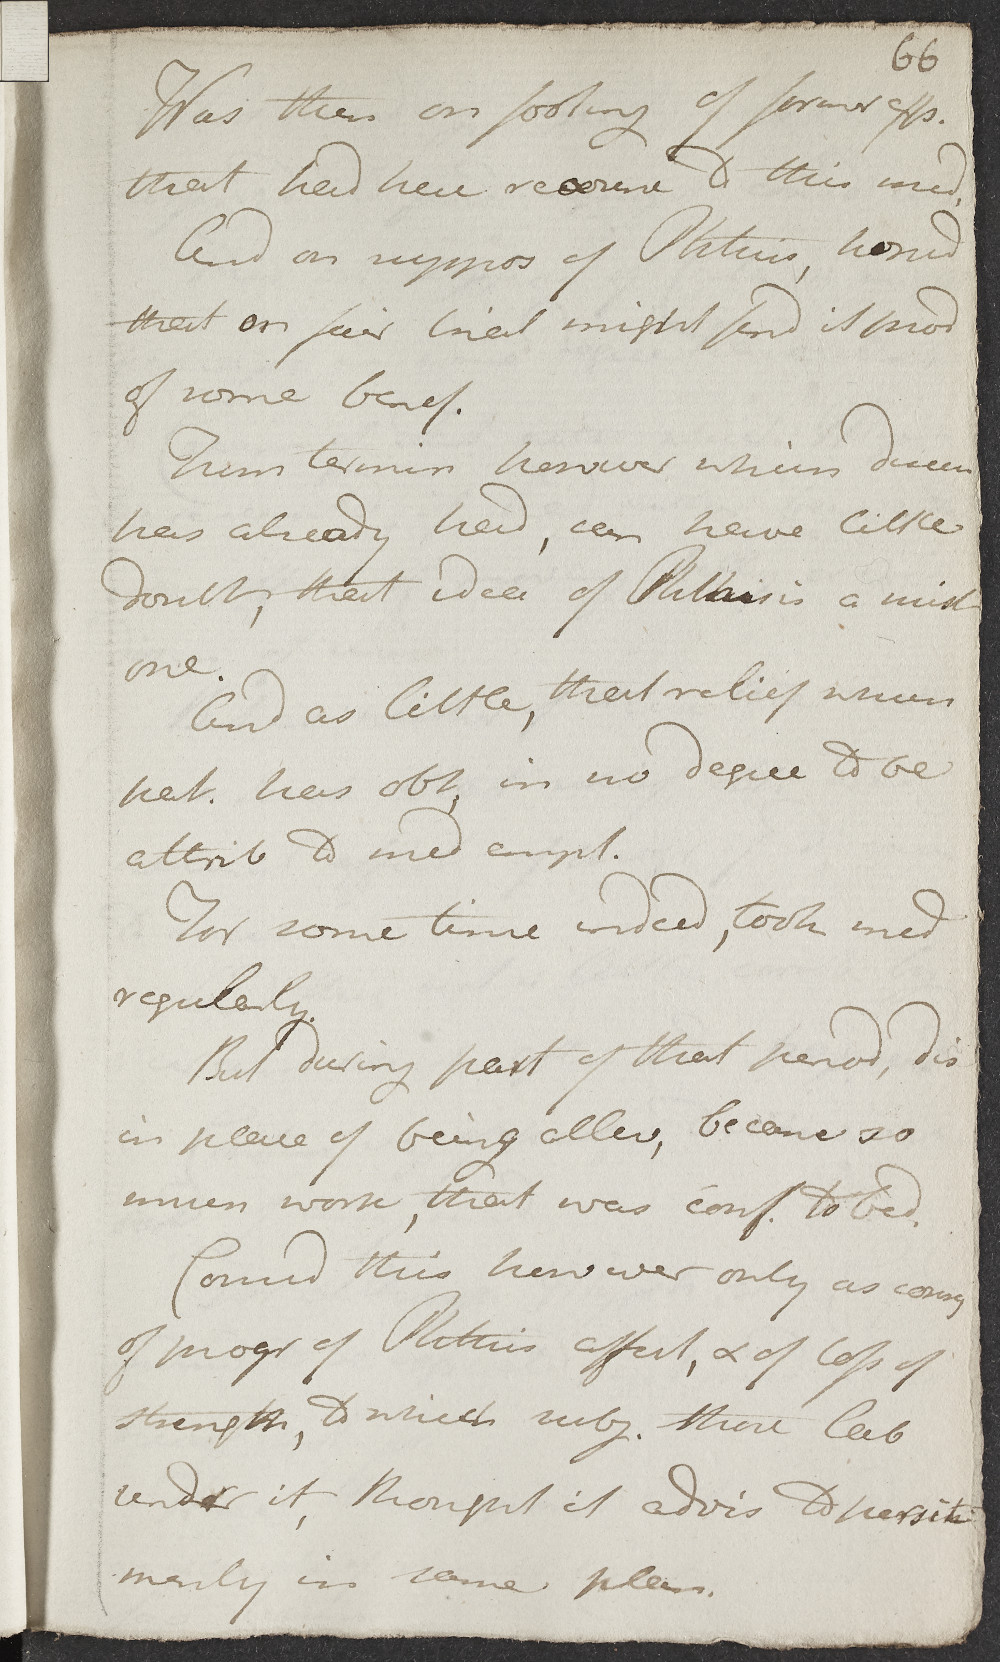 66
Was then on footing of former effs.
that had here recourse to this med.
And on suppos of Phthisis, hoped
that on fair trial might find it prod
of some benef.
From termin however which disease
has already had, can have little
doubt, that idea of Phthisis a mist
one.
And as little, that relief which
pat. has obt, in no degree to be
attrib to med empl.
For some time indeed, took med
regularly.
But during part of that period, dis
in place of being allev, became so
much worse, that was conf. to bed.
Consid this however only as conseq
of progr of Phthisis affect, & of loss of
strength, to which subj. those lab
under it, thought it advis to persist
merely in same plan.